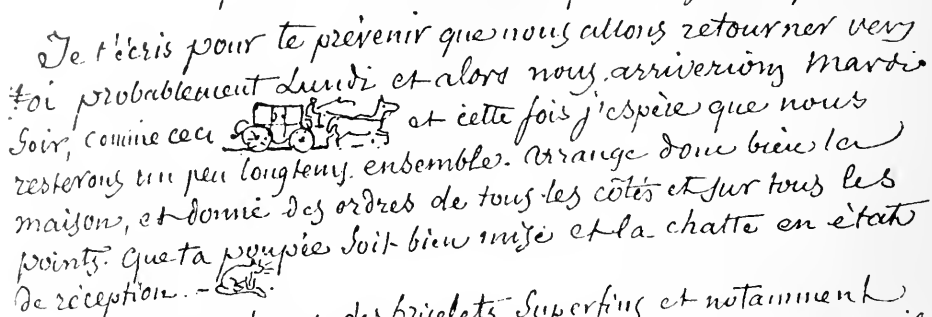 Je t'écris pour te prévenir que nous allons retourner vers
toi probablement Lundi et alors nous arriverions Mardi
soir, comme ceci et cette fois j'espère que nous
resterons un peu longtems ensemble. Arrange donc bien la
maison, et donne des ordres de tous les côtés et sur tous les
points. Que ta poupée soit bien mise et la chatte en état
de réception. -
des bricelets superfins et notamment